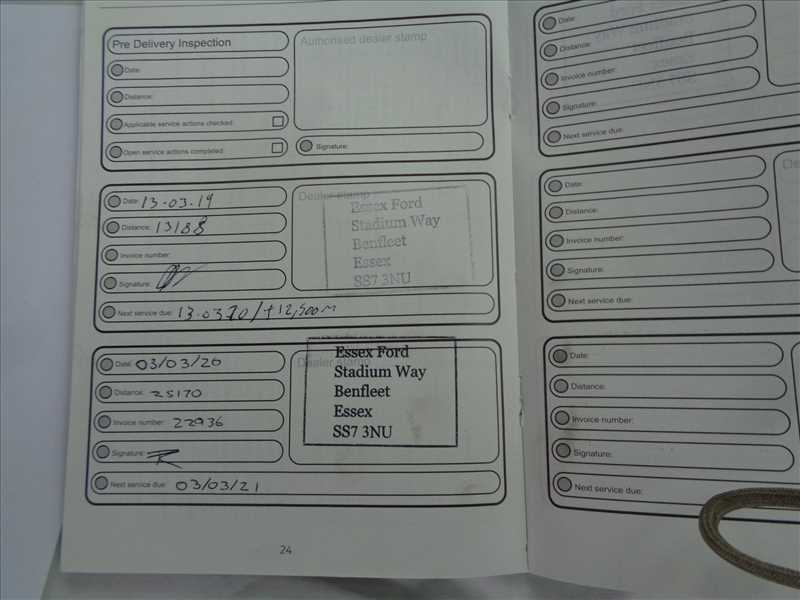 Pre Delivery Inspection
Date:
Distance:
Applicable service actions checked:
Open service actions completed:
Authorised dealer stamp
Signature:
Date: 13-03.19
Distance: 13188
Invoice number:
Signature:
Next service due: 13-03 20/+12,500m
Dealer stamp
Essex Ford
Stadium Way
Benfleet
Essex
SS7 3NU
Date: 03/03/20
Distance: 25170
Invoice number: 22936
Signature:
Next service due: 03/03/21
Dealer stamp
Essex Ford
Stadium Way
Benfleet
Essex
SS7 3NU
24
Date:
Distance:
Invoice number:
Signature:
Next service due:
Date:
Distance:
Invoice number:
Signature:
Next service due:
De
Date:
Distance:
Invoice number:
Signature:
Next service due: